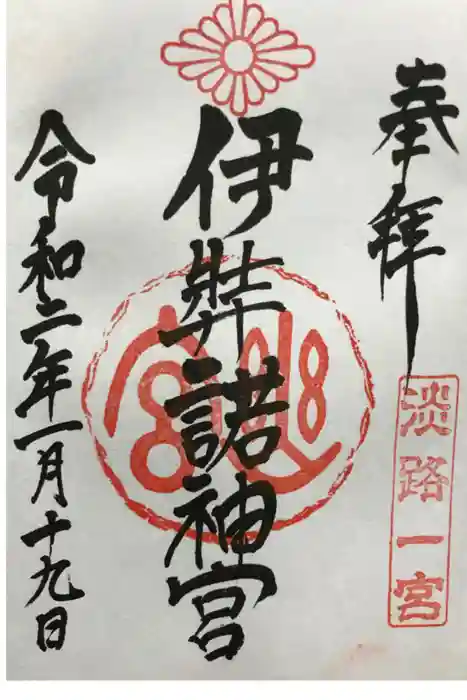 奉拝
淡路一宮
伊弉諾神宮
令和二年一月十九日